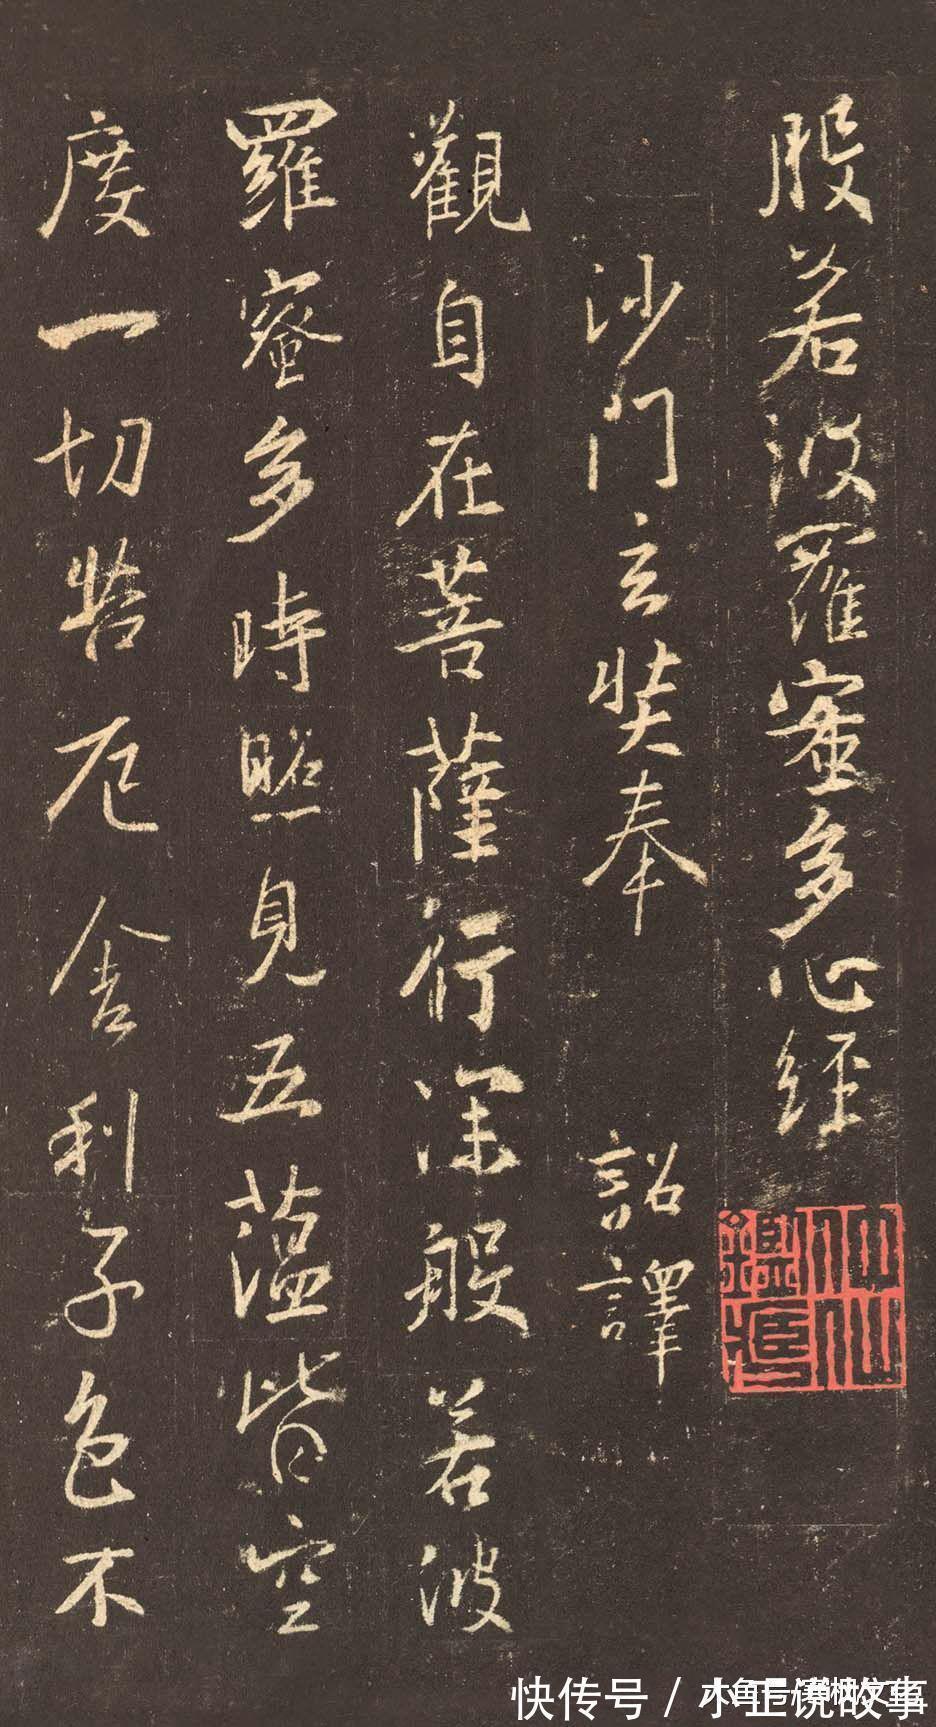 般若波羅蜜多心經
沙門玄奘奉 詔譯
觀自在菩薩行深般若波
羅蜜多時照見五蘊皆空
度一切苦厄舍利子色不
快传号 / 小正说故事